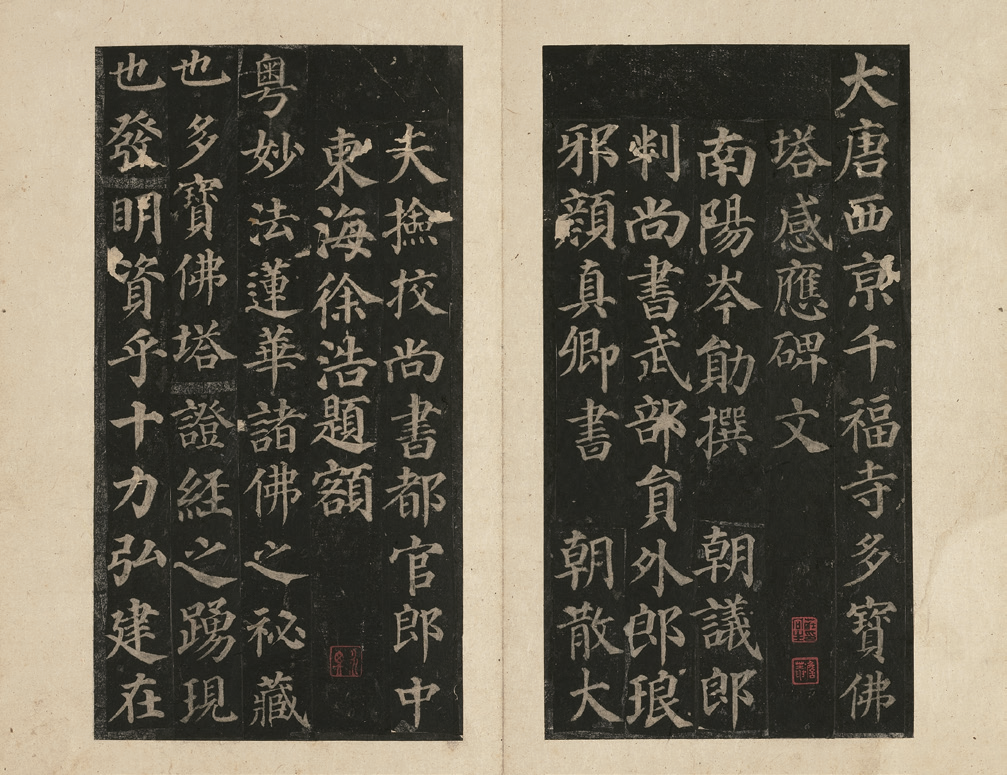 大唐西亰千福寺多寶佛
塔感應碑文
南陽岑勛撰 朝議郎
判尚書武部貟外郎琅
邪顏真卿書 朝散大
夫撿挍尚書都官郎中
東海徐浩題額
粤妙法蓮華諸佛之祕藏
也多寶佛塔證經之踴現
也發明資乎十力弘建在